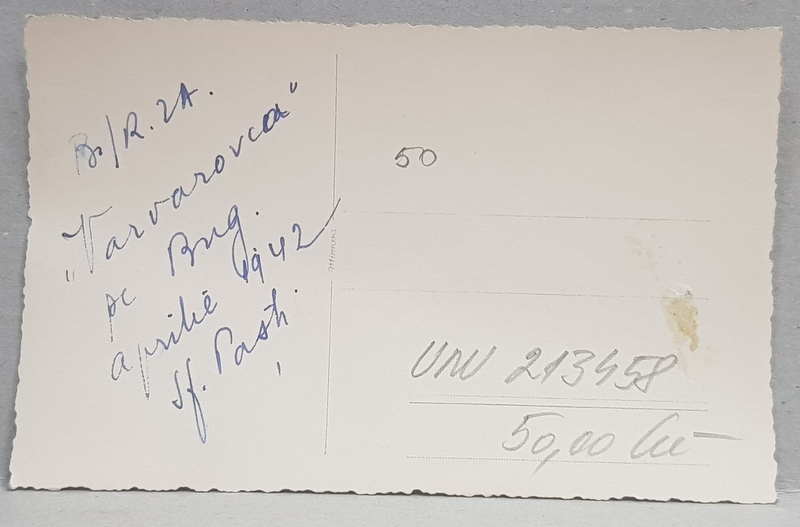 B/R. 2A.
"Varvarovca"
pe Bug.
aprilie 1942
Sf. Paști.
50
213458
50,00 lei